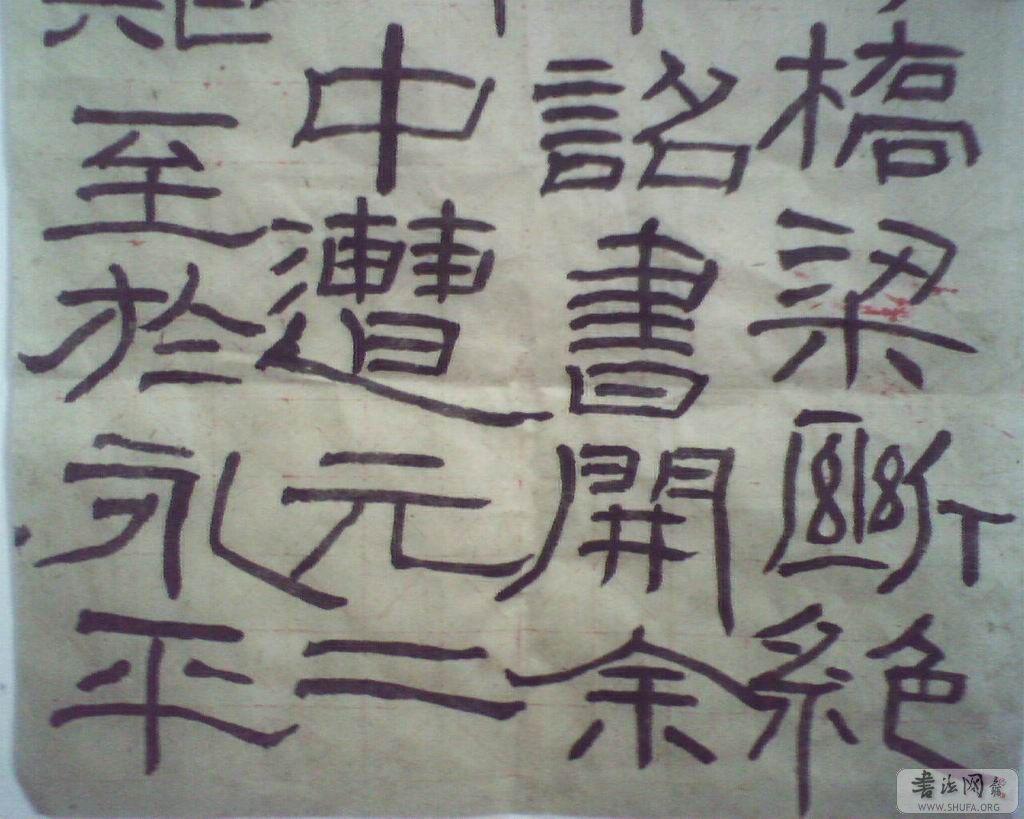 橋梁斷絕
詔書開余
中遭元二
至於永平
書法网
WWW.SHUFA.ORG